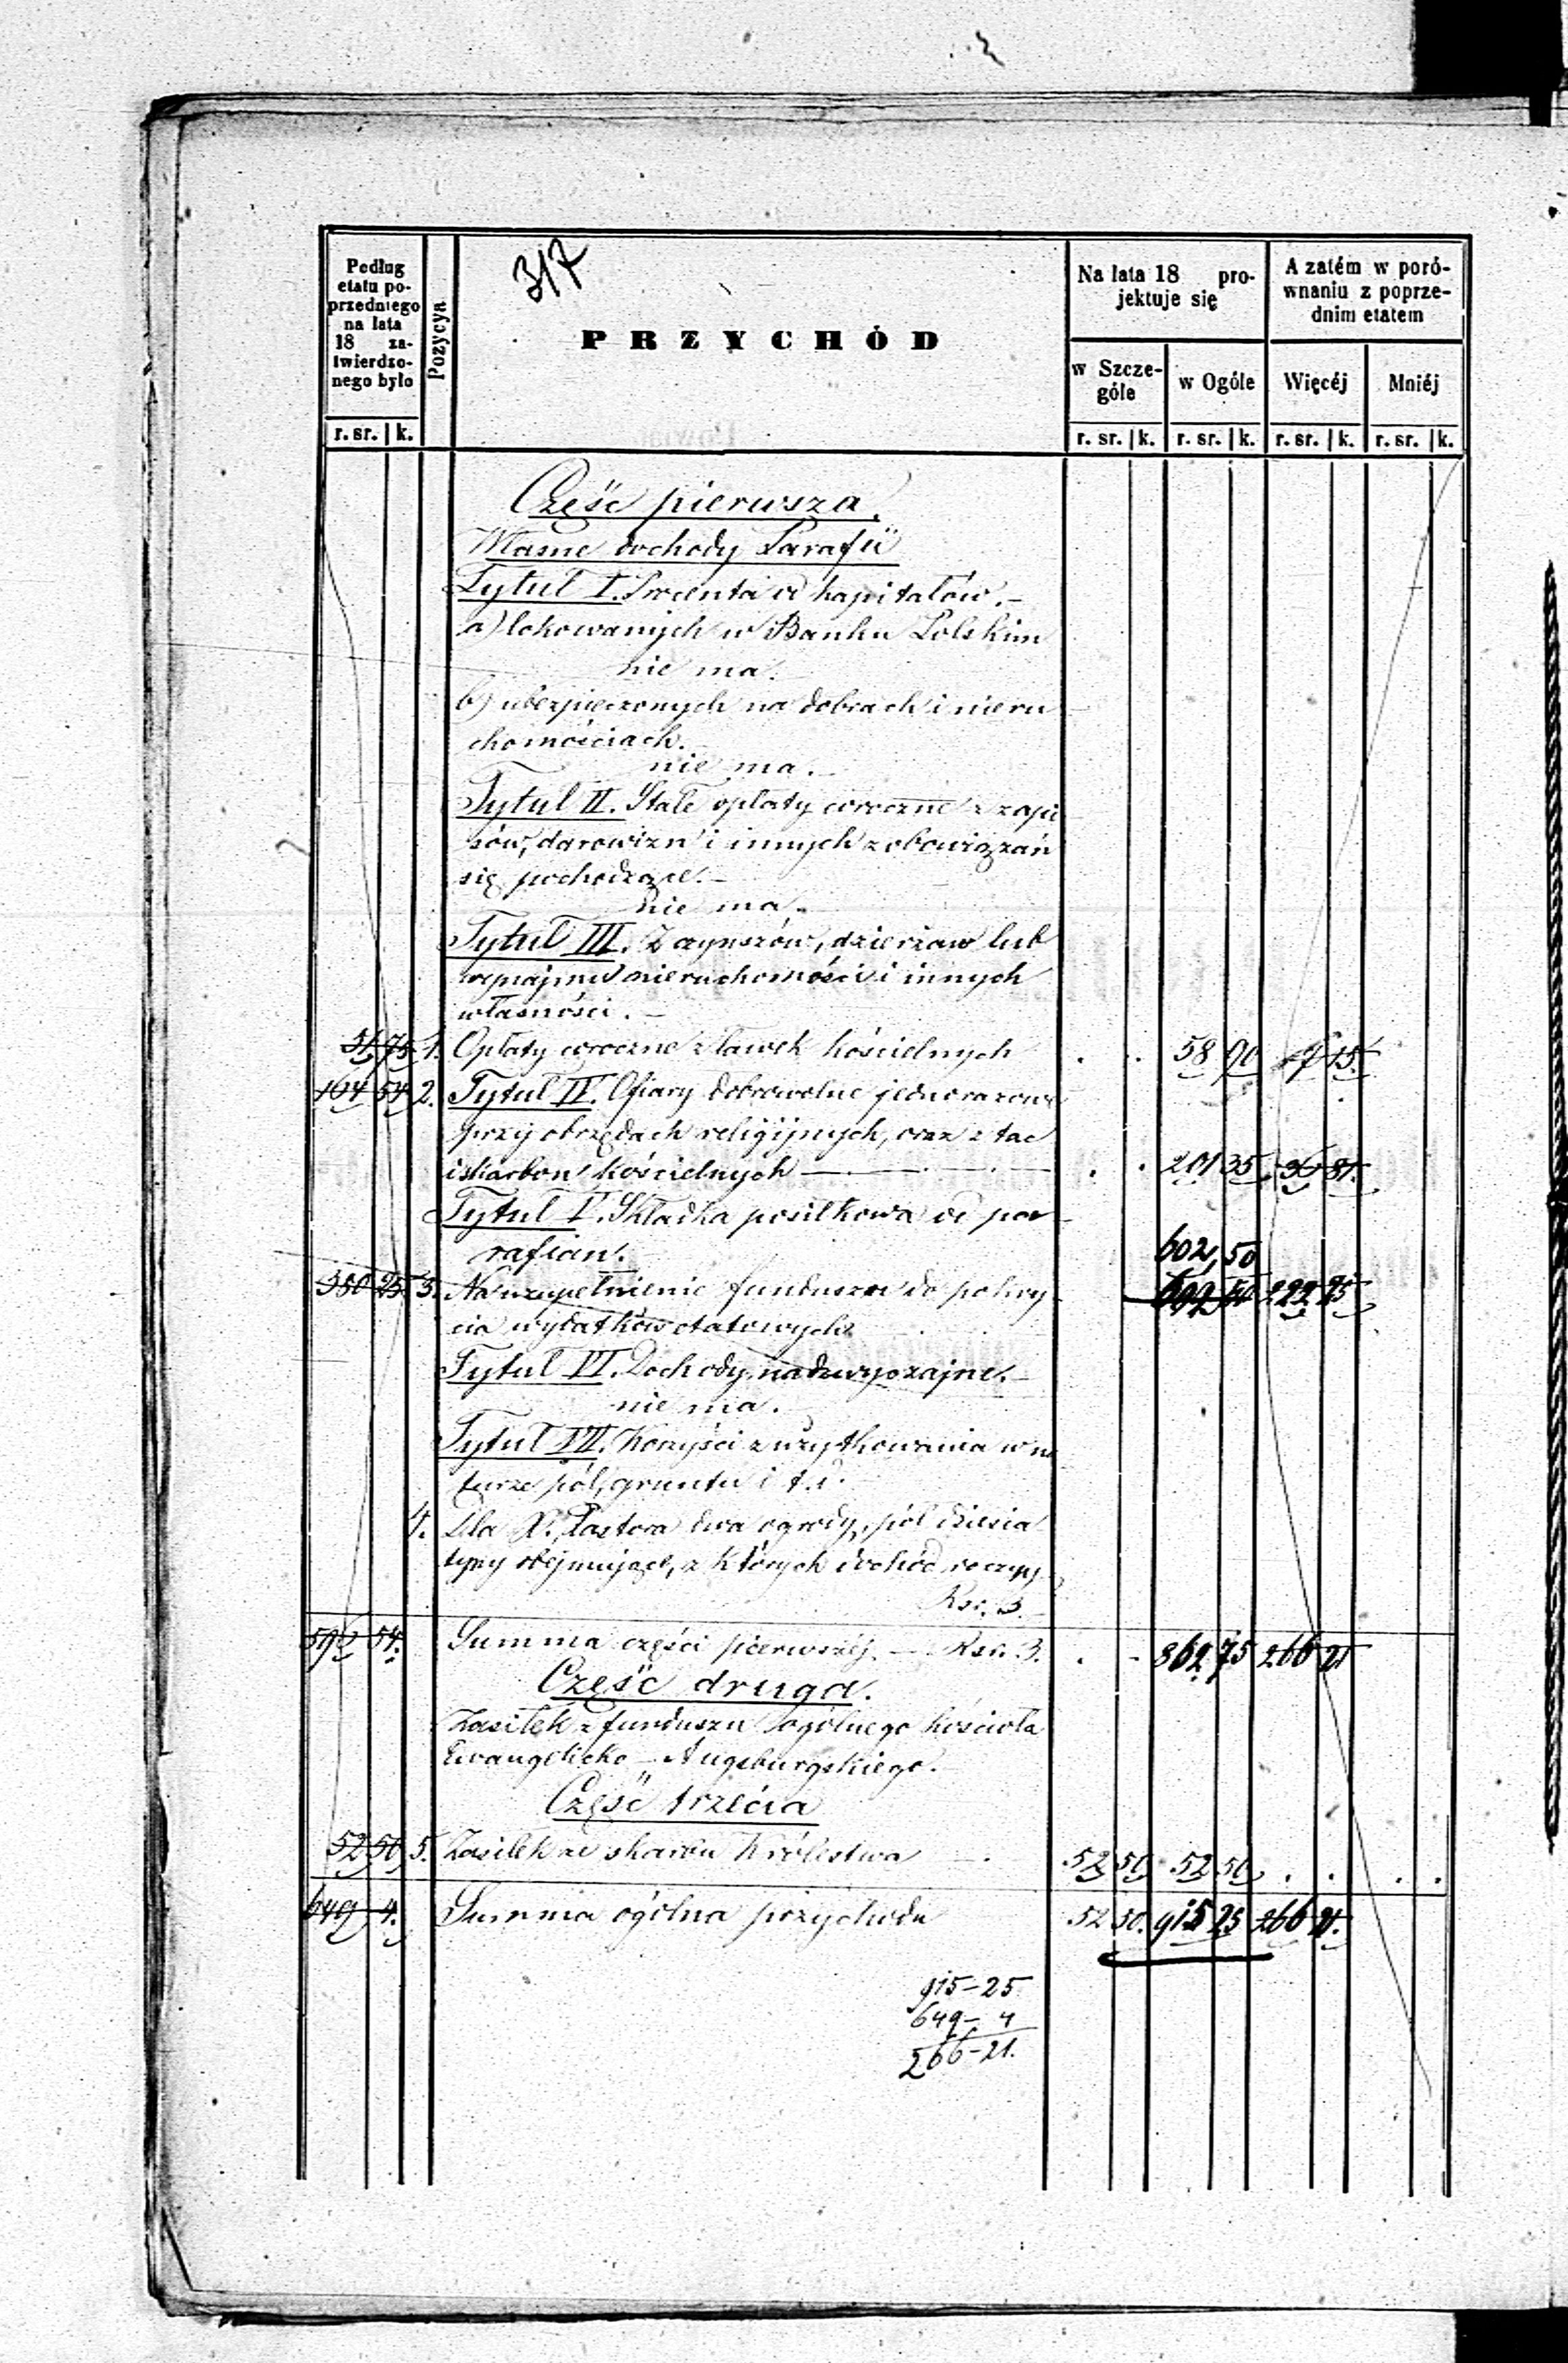 317
Podług etatu poprzedniego na lata 18 zatwierdzonego było
Pozycya
PRZYCHÓD
Na lata 18 projektuje się
A zatém w porównaniu z poprzednim etatem
w Szczególe
w Ogóle
Więcéj
Mniéj
r. sr. k. r. sr. k. r. sr. k. r. sr. k. r. sr. k.
Część pierwsza.
Własne dochody Parafii
Tytuł I. Procenta od kapitałów.
a) lokowanych w Banku Polskim
nie ma.
b) ubezpieczonych na dobrach i nieru
chomościach.
nie ma.
Tytuł II. Stałe opłaty coroczne z zapi
sów, darowizn i innych zobowiązań
się pochodzące.
nie ma.
Tytuł III. Z czynszów, dzierżaw lub
wynajmu nieruchomości i innych
własności.
75 1. Opłaty coroczne z ławek kościelnych 58 90 15
164 54 2. Tytuł IV. Ofiary dobrowolne jednorazowe
przy obrzędach religijnych, oraz z tac
i skarbon kościelnych 201 35 36 81
Tytuł V. Składka posiłkowa od pa
rafian.
602,50
380 25 3. Na uzupełnienie funduszu do pokry 602 50 222 25
cia wydatków etatowych
Tytuł VI. Dochody nadzwyczajne.
nie ma.
Tytuł VII. Korzyści z użytkowania w na
turze pól, gruntu i t.d.
4. Dla X. Pastora dwa ogrody, pół dziesia
tyny obejmujące, z których dochód roczny
Rsr. 3.
54. Summa części pierwszéj. Rsr. 3. 862 75 266 21
Część druga.
Zasiłek z funduszu ogólnego kościoła
Ewangelicko-Augsburgskiego.
Część trzecia
52 50 5. Zasiłek ze skarbu Królestwa 52 50 52 50
649 4. Summa ogólna przychodu 52 50. 915 25 266 21.
915-25
649- 4
266-21.